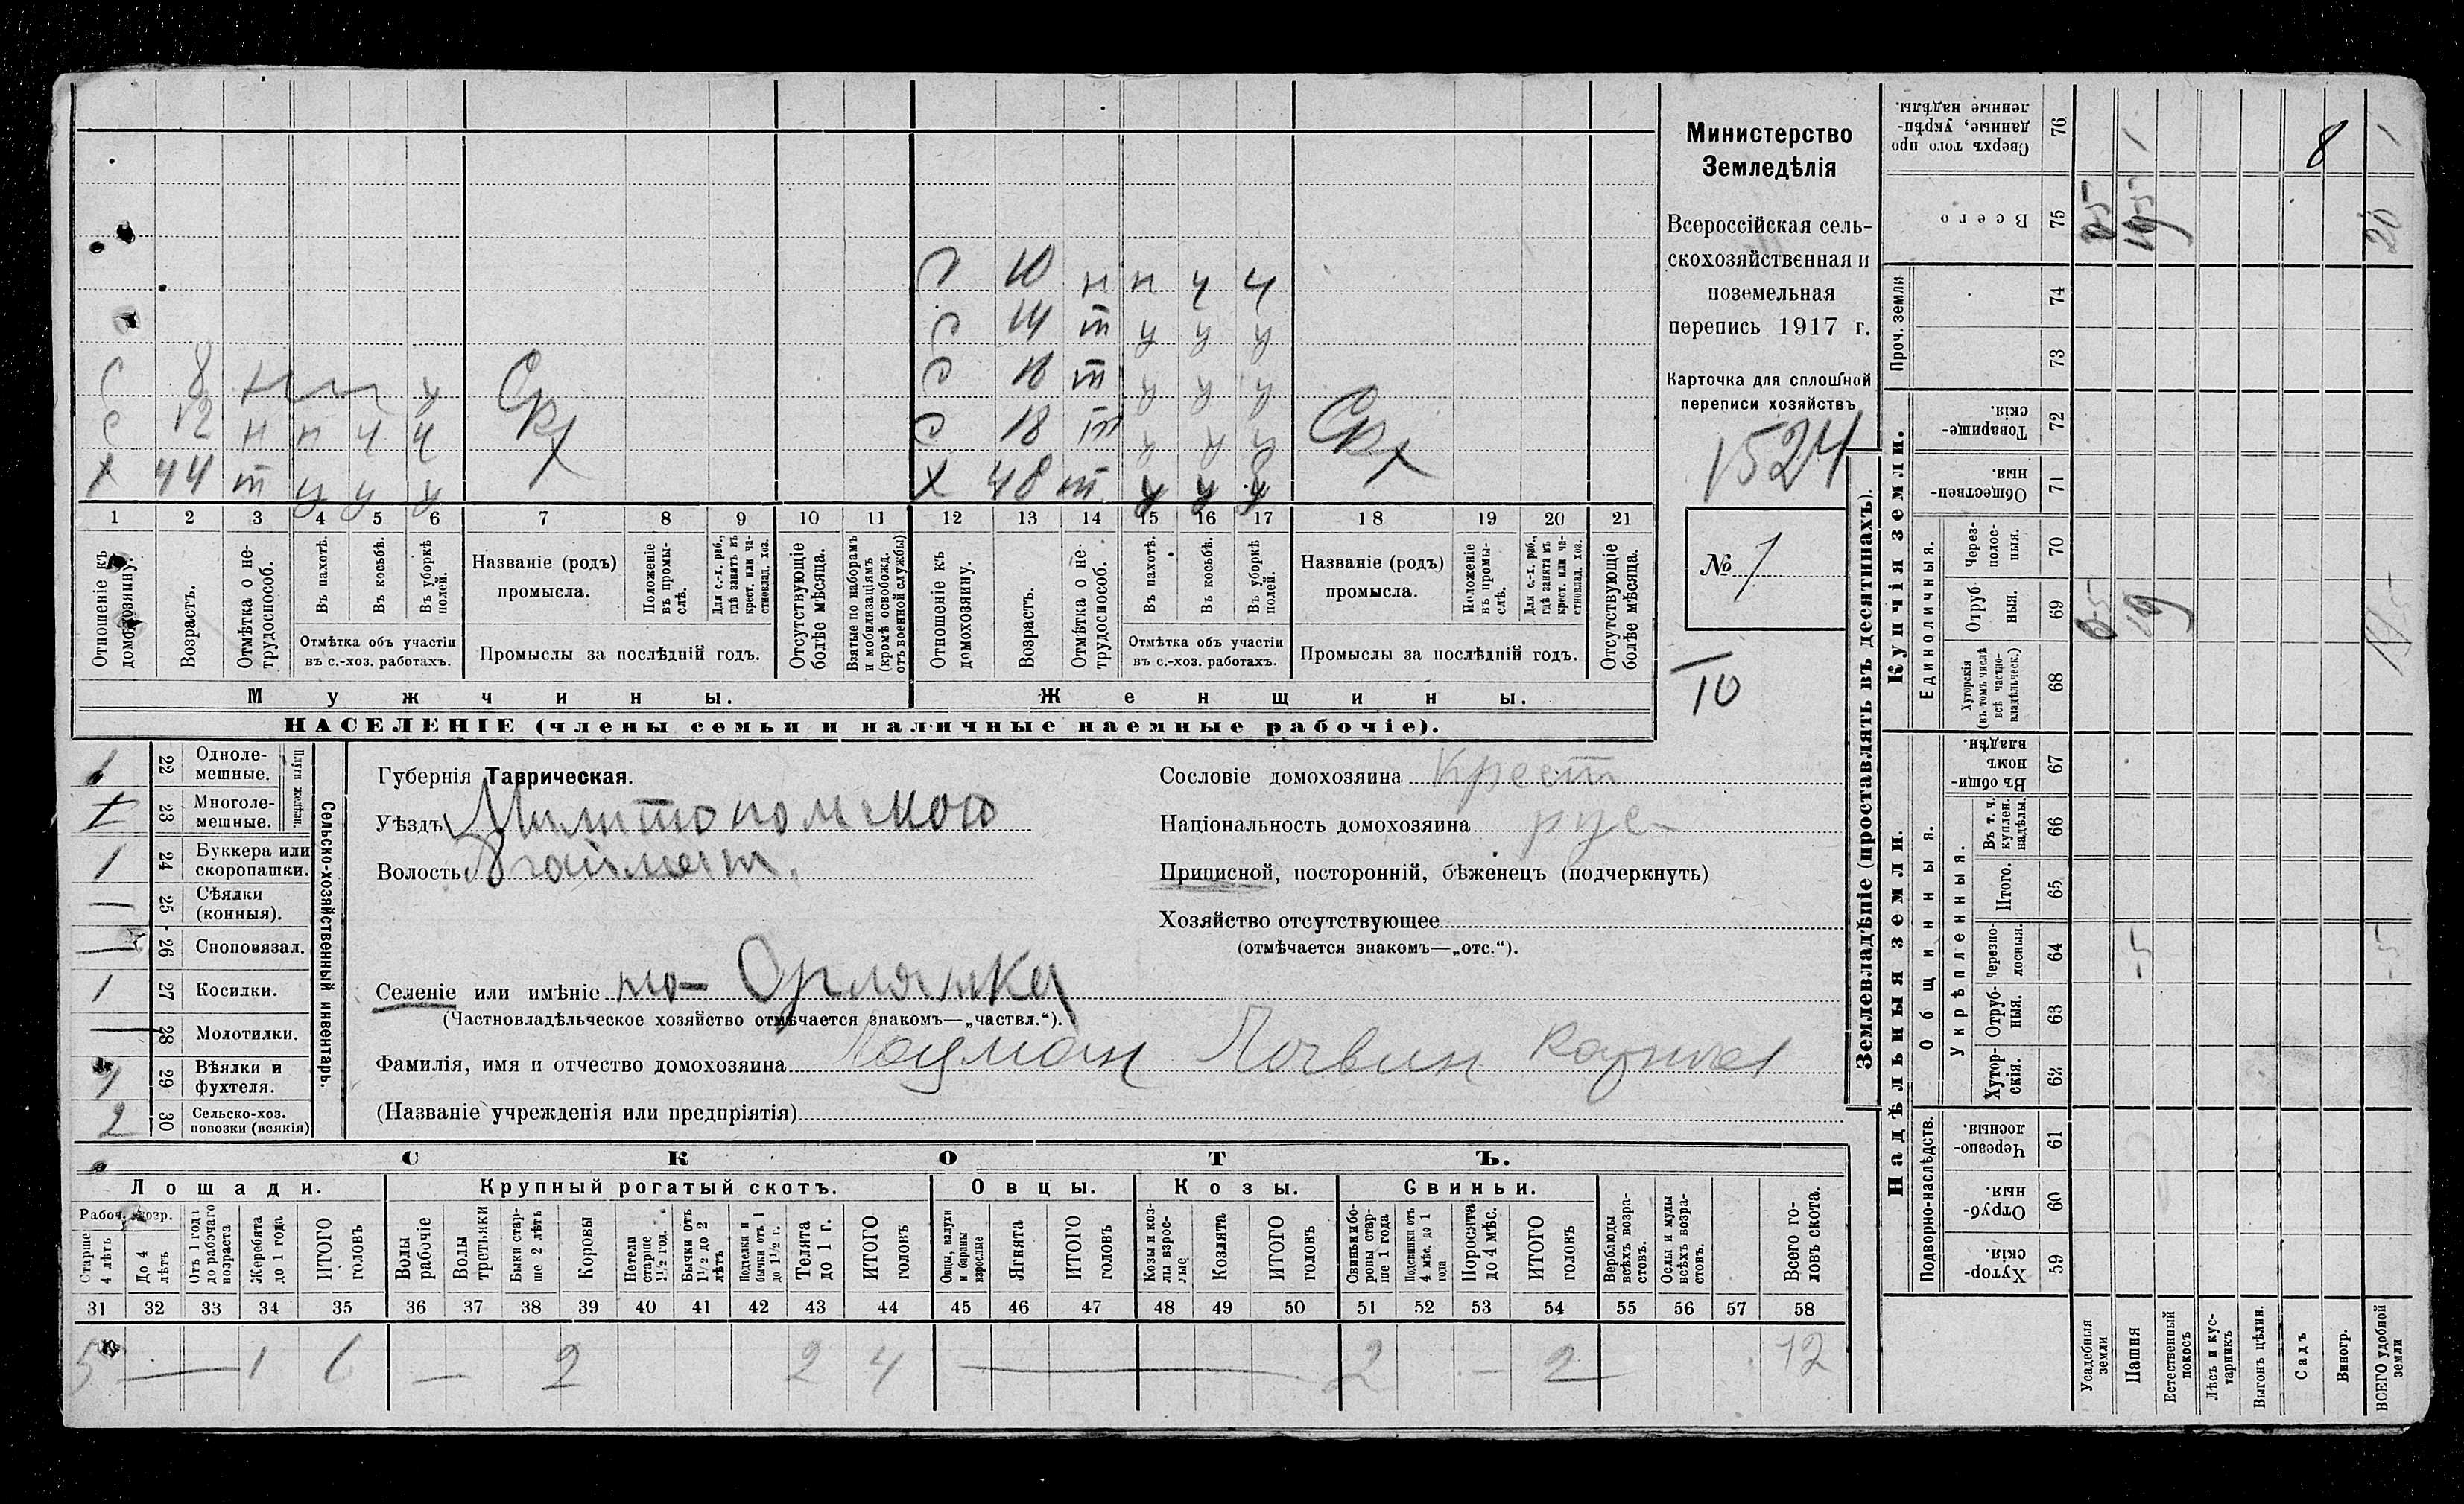 Министерство
Земледѣлія
Всероссійская сель-
скохозяйственная и
поземельная
перепись 1917 г.
Карточка для сплошной
переписи хозяйствъ
1524
№ 1
10
С 10 н п ч ч
С 14 т у у у
С 8 у С 16 т у у у
С 12 н п ч ч Сх С 18 т у у у Сх
Х 44 т у у у Х 48 т у у у
1 2 3 4 5 6 7 8 9 10 11 12 13 14 15 16 17 18 19 20 21
Отношеніе къ домохозяину.
Возрастъ.
Отмѣтка о не-трудоспособ.
Въ пахотѣ.
Въ косьбѣ.
Въ уборкѣ полей.
Отмѣтка объ участіи
въ с.-хоз. работахъ.
Названіе (родъ)
промысла.
Положеніе въ промы-слѣ.
Для с.-х. раб., гдѣ занятъ въ крест. или ча-стновлад. хоз.
Промыслы за послѣдній годъ.
Отсутствующіе болѣе мѣсяца.
Взятые по наборамъ и мобилизаціямъ (кромѣ освобожд. отъ военной службы)
Отношеніе къ домохозяину.
Возрастъ.
Отмѣтка о не-трудоспособ.
Въ пахотѣ.
Въ косьбѣ.
Въ уборкѣ полей.
Отмѣтка объ участіи
въ с.-хоз. работахъ.
Названіе (родъ)
промысла.
Положеніе въ промы-слѣ.
Для с.-х. раб., гдѣ занята въ крест. или ча-стновлад. хоз.
Промыслы за послѣдній годъ.
Отсутствующіе болѣе мѣсяца.
Мужчины. Женщины.
НАСЕЛЕНІЕ (члены семьи и наличные наемные рабочіе).
Сельско-хозяйственный инвентарь.
Плуги желѣзн.
22 Одноле-мешные.
1 23 Многоле-мешные.
1 24 Буккера или скоропашки.
— 25 Сѣялки (конныя).
— 26 Сноповязал.
1 27 Косилки.
— 28 Молотилки.
1 29 Вѣялки и фухтеля.
2 30 Сельско-хоз. повозки (всякія)
Губернія Таврическая.
Уѣздъ Милитопольского
Волость Агайман.
Селеніе или имѣніе Орлянка
(Частновладѣльческое хозяйство отмѣчается знакомъ—„частвл.“).
Фамилія, имя и отчество домохозяина
(Названіе учрежденія или предпріятія)
Сословіе домохозяина Крест
Національность домохозяина рус
Приписной, посторонній, бѣженецъ (подчеркнуть)
Хозяйство отсутствующее
(отмѣчается знакомъ—„отс.“).
СКОТЪ.
Лошади. Крупный рогатый скотъ. Овцы. Козы. Свиньи.
Рабоч. возр.
Старше 4 лѣтъ
До 4 лѣтъ
Отъ 1 года до рабочаго возраста
Жеребята до 1 года
ИТОГО головъ
Волы рабочіе
Волы третьяки
Быки стар-ше 2 лѣтъ
Коровы
Нетели старше 1½ год.
Бычки отъ 1½ до 2 лѣтъ
Подтелки и бычки отъ 1 до 1½ г.
Телята до 1 г.
ИТОГО головъ
Овцы, валухи и бараны взрослые
Ягнята
ИТОГО головъ
Козы и коз-лы взрос-лые
Козлята
ИТОГО головъ
Свиньи и бо-ровы стар-ше 1 года
Подсвинки отъ 4 мѣс. до 1 года
Поросята до 4 мѣс.
ИТОГО головъ
Верблюды всѣхъ возра-стовъ.
Ослы и мулы всѣхъ возра-стовъ.
Всего го-ловъ скота.
31 32 33 34 35 36 37 38 39 40 41 42 43 44 45 46 47 48 49 50 51 52 53 54 55 56 57 58
5 — 1 6 — 2 2 4 — 2 — 2 12
Землевладѣніе (проставлять въ десятинахъ).
Купчія земли.
Надѣльныя земли.
Сверхъ того про-данные, укрѣп-ленные надѣлы. 76
Всего 75
Проч. земли 74 73
Товарище-скія. 72
Обществен-ныя. 71
Единоличныя.
Через-полос-ныя. 70
Отруб-ныя. 69
Хуторскія (въ томъ числѣ всѣ частно-владѣльческ.) 68
Въ общин-номъ владѣн. 67
Общинныя.
Укрѣпленныя.
Въ т. ч. куплен. надѣлы. 66
Итого. 65
Черезпо-лосныя. 64
Отруб-ныя. 63
Хутор-скія. 62
Подворно-наслѣдств.
Черезпо-лосныя. 61
Отруб-ныя 60
Хутор-скія. 59
Усадебныя земли
Пашня
Естественный покосъ
Лѣсъ и кус-тарникъ
Выгонъ цѣлин.
Садъ
Виногр.
ВСЕГО удобной земли
8
20